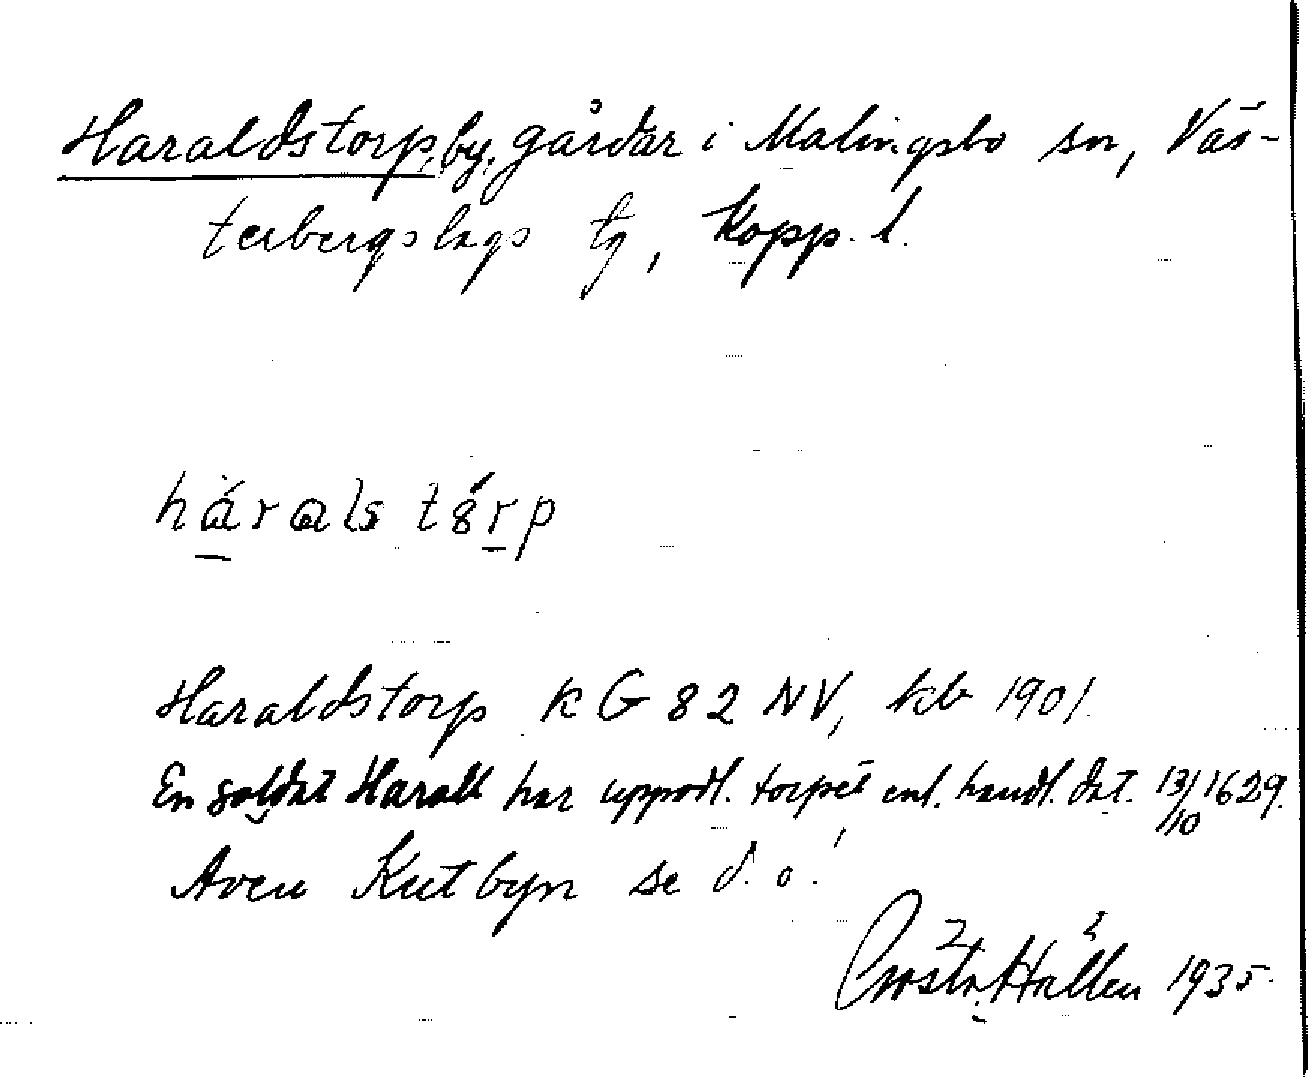 Haraldstorp, by, gårdar i Malingsbo sn, Väs-
terbergslags tg, Kopp. l.
hàrals tórp
Haraldstorp k G 82 NV, kb 1901.
En soldat Harald har uppodl. torpet enl. handl. dat. 13/10 1629.
Även Kutbyn se d. o!
Gösta Hallén 1935.